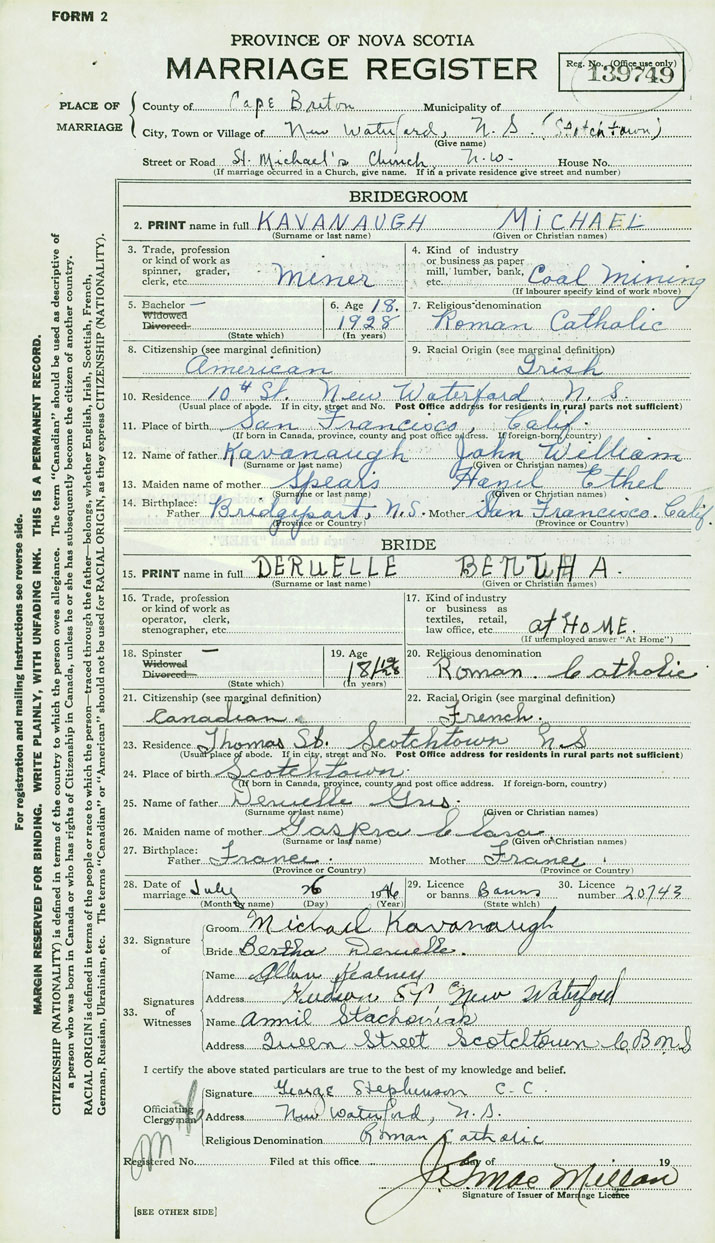 FORM 2
PROVINCE OF NOVA SCOTIA
MARRIAGE REGISTER
Reg. No. (Office use only)
139749
PLACE OF MARRIAGE
County of Cape Breton Municipality of
City, Town or Village of New Waterford, N. S. (Scotchtown)
(Give name)
Street or Road St. Michael's Church N.W. House No.
(If marriage occurred in a Church, give name. If in a private residence give street and number)
BRIDEGROOM
2. PRINT name in full KAVANAUGH MICHAEL
(Surname or last name) (Given or Christian names)
3. Trade, profession or kind of work as spinner, grader, clerk, etc. Miner
4. Kind of industry or business as paper mill, lumber, bank, etc. Coal Mining
(If labourer specify kind of work above)
5. Bachelor – Widowed Divorced (State which)
6. Age 18. 1928 (In years)
7. Religious denomination Roman Catholic
8. Citizenship (see marginal definition) American
9. Racial Origin (see marginal definition) Irish
10. Residence 10th St. New Waterford N. S.
(Usual place of abode. If in city, street and No. Post Office address for residents in rural parts not sufficient)
11. Place of birth San Francisco, Calif.
(If born in Canada, province, county and post office address. If foreign-born, country)
12. Name of father Kavanaugh John William
(Surname or last name) (Given or Christian names)
13. Maiden name of mother Spears Hazil Ethel
(Surname or last name) (Given or Christian names)
14. Birthplace: Father Bridgeport, N.S. Mother San Francisco. Calif.
(Province or Country) (Province or Country)
BRIDE
15. PRINT name in full DERUELLE A.
(Surname or last name) (Given or Christian names)
16. Trade, profession or kind of work as operator, clerk, stenographer, etc.
17. Kind of industry or business as textiles, retail, law office, etc. at HOME.
(If unemployed answer "At Home")
18. Spinster – Widowed Divorced (State which)
19. Age 18 (In years)
20. Religious denomination Roman Catholic
21. Citizenship (see marginal definition) Canadian.
22. Racial Origin (see marginal definition) French.
23. Residence Thomas St. Scotchtown N.S
(Usual place of abode. If in city, street and No. Post Office address for residents in rural parts not sufficient)
24. Place of birth Scotchtown.
(If born in Canada, province, county and post office address. If foreign-born, country)
25. Name of father Deruelle Gris.
(Surname or last name) (Given or Christian names)
26. Maiden name of mother Gaspra Clara
(Surname or last name) (Given or Christian names)
27. Birthplace: Father France. Mother France.
(Province or Country) (Province or Country)
28. Date of marriage July 26 1946
(Month by name) (Day) (Year)
29. Licence or banns Banns (State which)
30. Licence number 20743
32. Signature of
Groom Michael Kavanaugh
Bride Bertha Deruelle.
33. Signatures of Witnesses
Name Allan Kearney
Address Hudson St New Waterford
Name Annil
Address Queen Street Scotchtown C.B N.S
I certify the above stated particulars are true to the best of my knowledge and belief.
Officiating Clergyman
Signature George Stephenson C. C.
Address New Waterford, N. S.
Religious Denomination Roman Catholic
Registered No. Filed at this office day of 19
Signature of Issuer of Marriage Licence
[SEE OTHER SIDE]
For registration and mailing Instructions see reverse side.
MARGIN RESERVED FOR BINDING. WRITE PLAINLY, WITH UNFADING INK. THIS IS A PERMANENT RECORD.
CITIZENSHIP (NATIONALITY) is defined in terms of the country to which the person owes allegiance. The term "Canadian" should be used as descriptive of
a person who was born in Canada or who has rights of Citizenship in Canada, unless he or she has subsequently become the citizen of another country.
RACIAL ORIGIN is defined in terms of the people or race to which the person—traced through the father—belongs, whether English, Irish, Scottish, French,
German, Russian, Ukrainian, etc. The terms "Canadian" or "American" should not be used for RACIAL ORIGIN, as they express CITIZENSHIP (NATIONALITY).